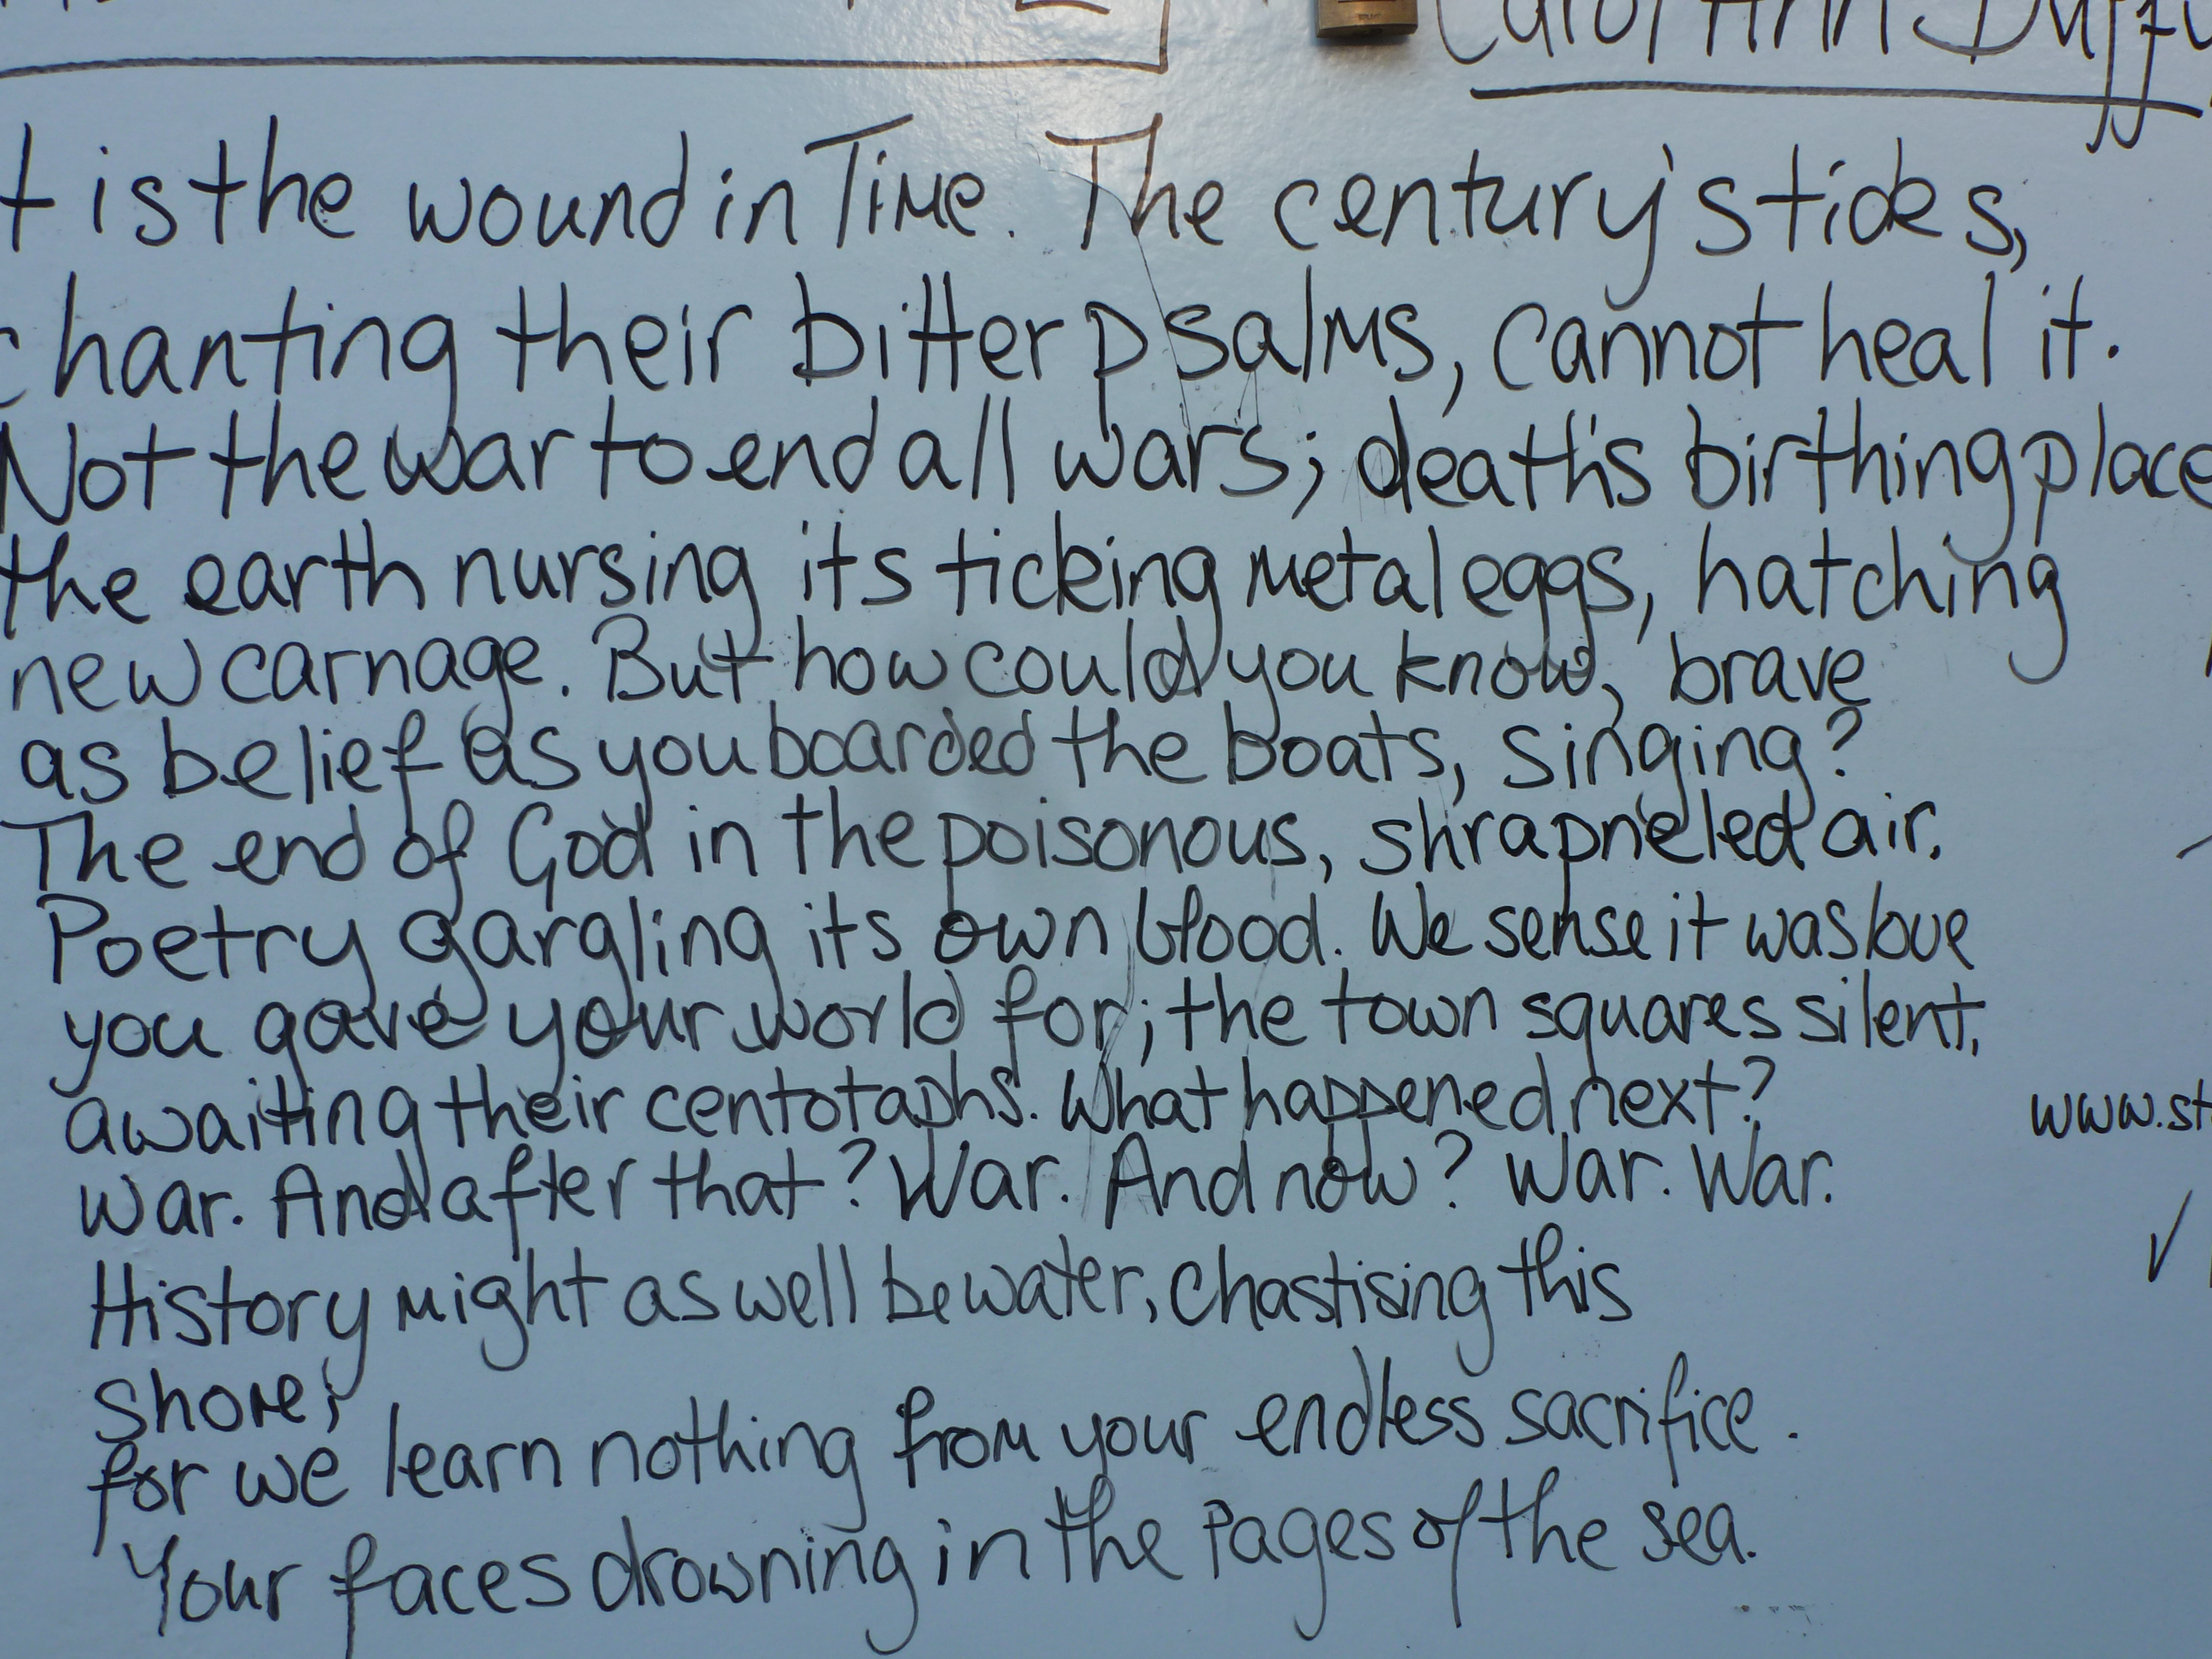 Carol Ann Duffy
t is the wound in Time. The century's tides,
chanting their bitter psalms, cannot heal it.
Not the war to end all wars; death's birthing place
the earth nursing its ticking metal eggs, hatching
new carnage. But how could you know, brave
as belief as you boarded the boats, singing?
The end of God in the poisonous, shrapneled air.
Poetry gargling its own blood. We sense it was love
you gave your world for; the town squares silent,
awaiting their centotaphs. What happened next?
www.st
War. And after that? War. And now? War. War.
History might as well be water, chastising this
shore;
for we learn nothing from your endless sacrifice.
Your faces drowning in the pages of the sea.